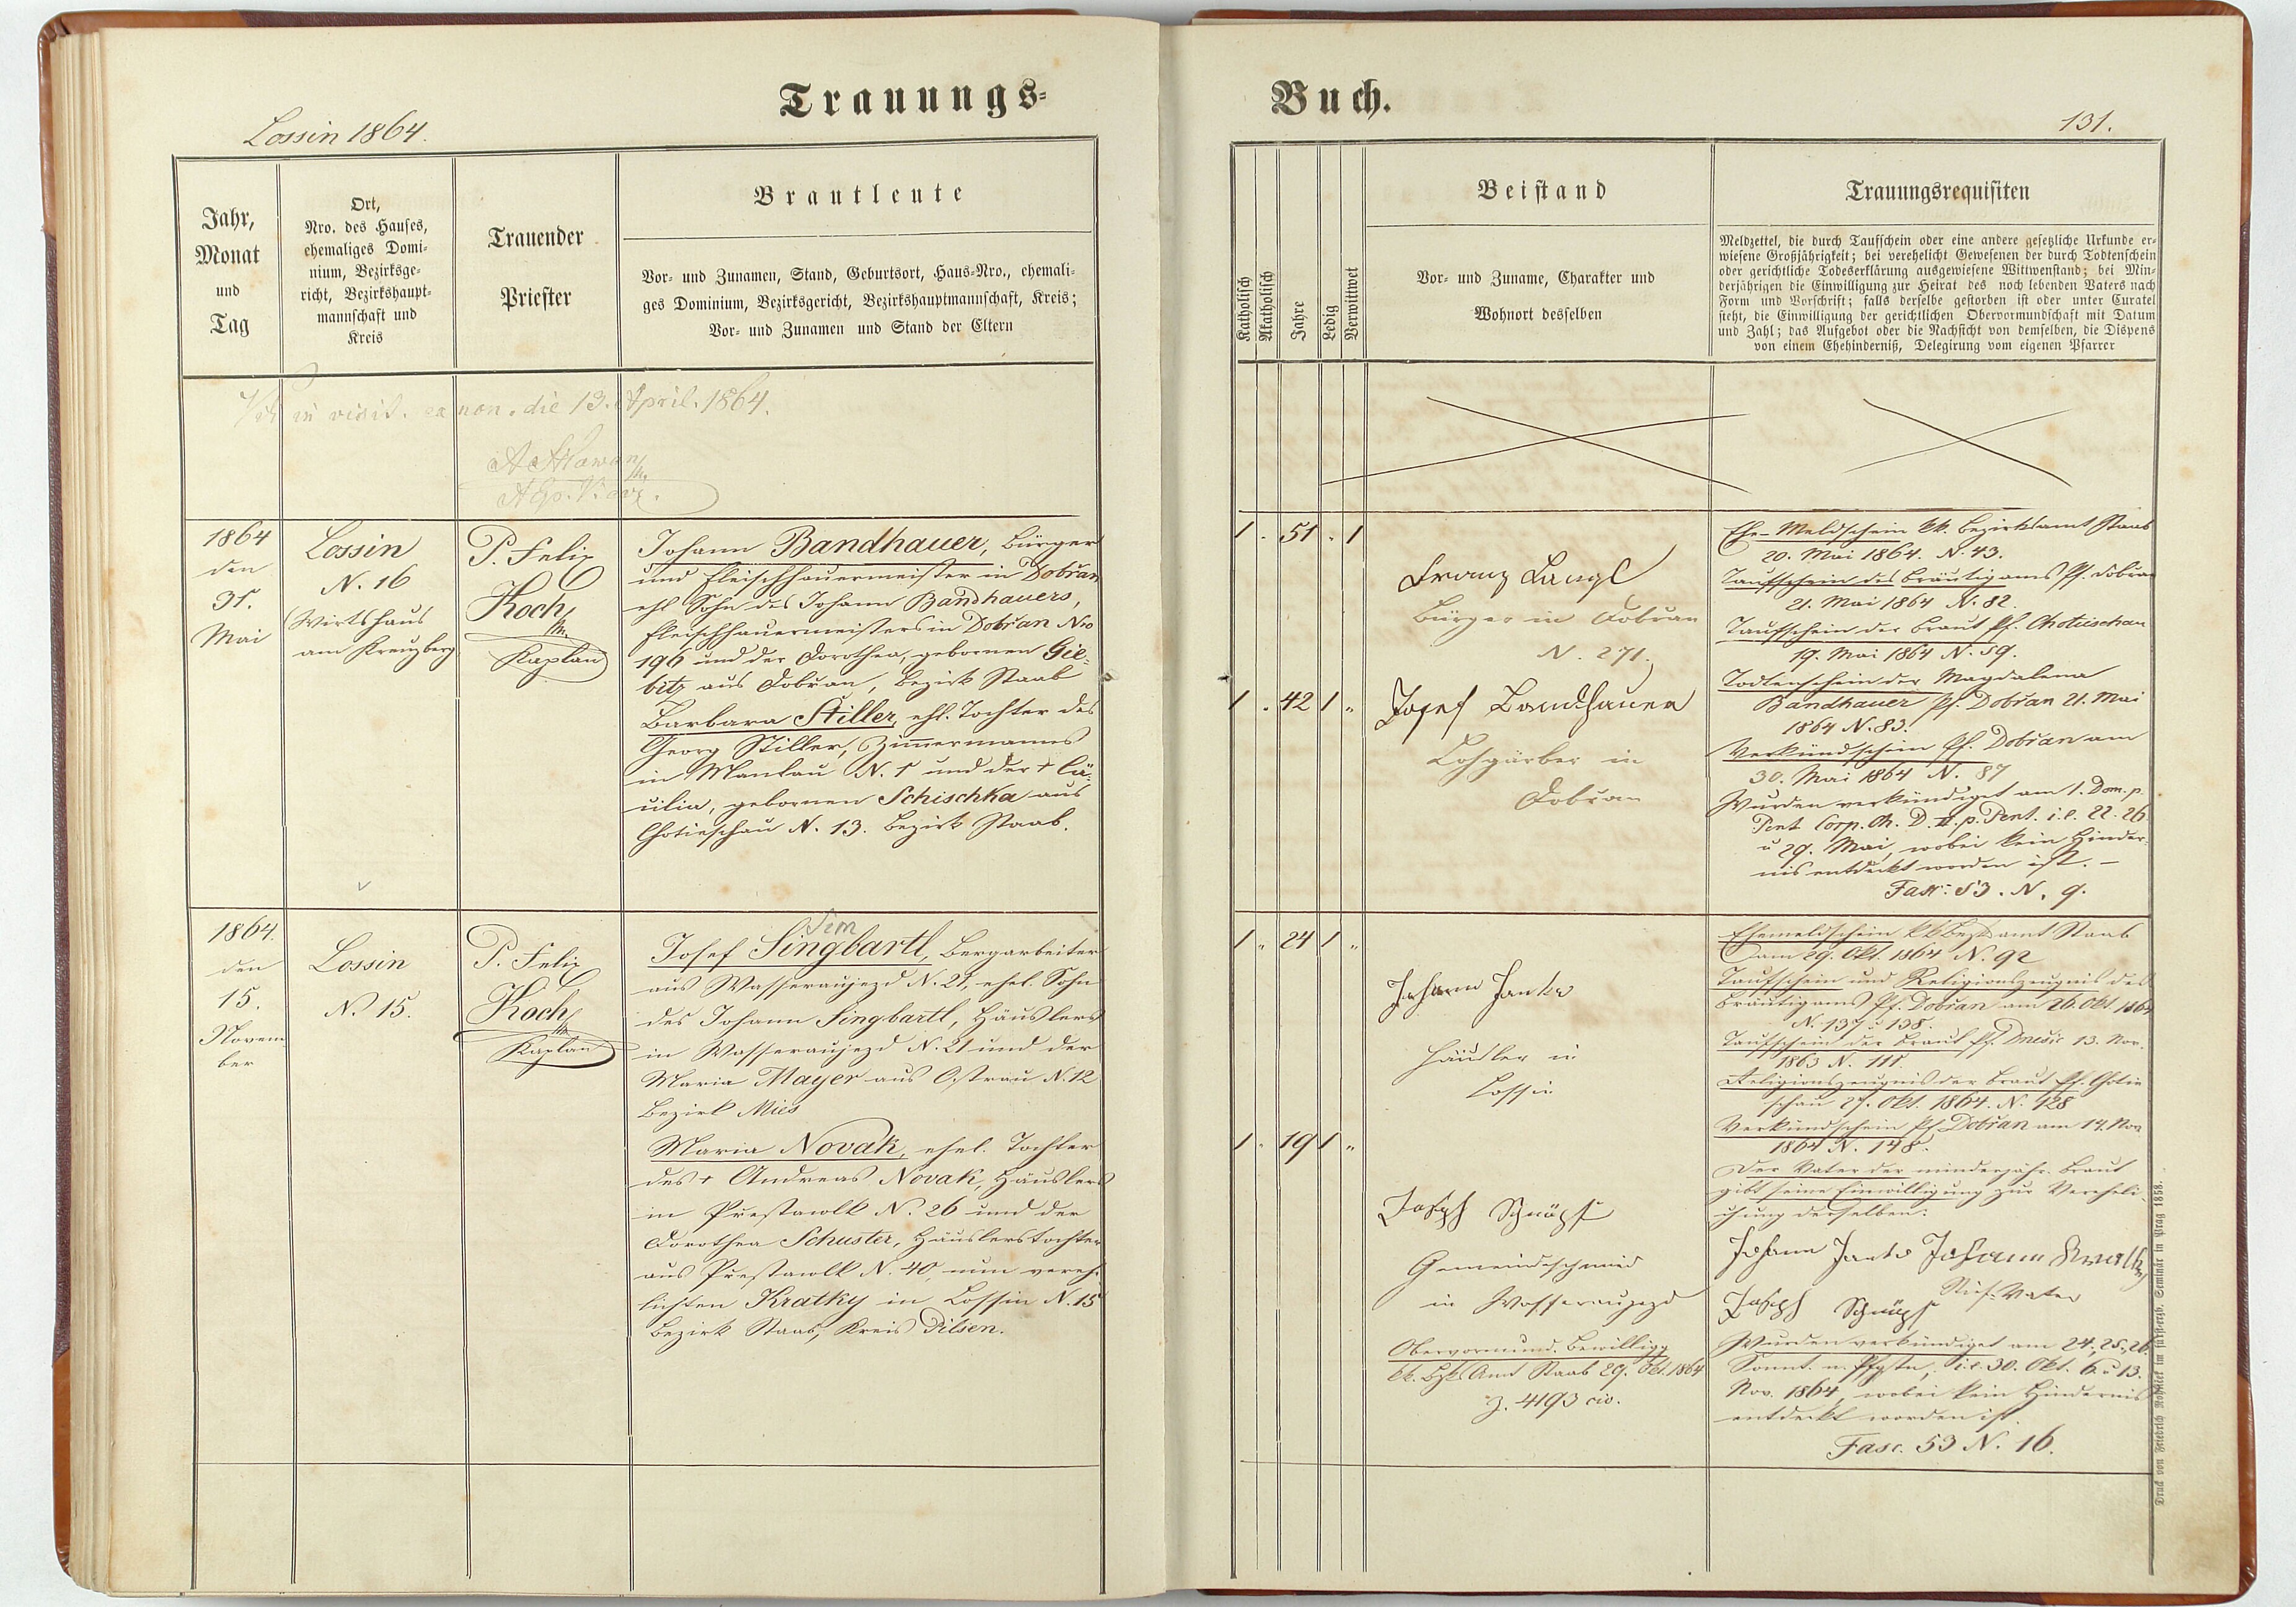 Trauungs-
Buch.
Lossin 1864.
131.
Jahr,
Monat
und
Tag
Ort,
Nro. des Hauses,
ehemaliges Domi-
nium, Bezirksge-
richt, Bezirkshaupt-
mannschaft und
Kreis
Trauender
Priester
Brautleute
Vor- und Zunamen, Stand, Geburtsort, Haus-Nro., ehemali-
ges Dominium, Bezirksgericht, Bezirkshauptmannschaft, Kreis;
Vor- und Zunamen und Stand der Eltern
Katholisch
Akatholisch
Jahre
Ledig
Verwittwet
Beistand
Vor- und Zuname, Charakter und
Wohnort desselben
Trauungsrequisiten
Meldzettel, die durch Taufschein oder eine andere gesetzliche Urkunde er-
wiesene Großjährigkeit; bei verehelicht Gewesenen der durch Todtenschein
oder gerichtliche Todeserklärung ausgewiesene Wittwenstand; bei Min-
derjährigen die Einwilligung zur Heirat des noch lebenden Vaters nach
Form und Vorschrift; falls derselbe gestorben ist oder unter Curatel
steht, die Einwilligung der gerichtlichen Obervormundschaft mit Datum
und Zahl; das Aufgebot oder die Nachsicht von demselben, die Dispens
von einem Ehehinderniß, Delegirung vom eigenen Pfarrer
in visit. canon. die 13. April. 1864.
1864
den
31.
Mai
Lossin
N. 16
Wirtshaus
am Kreuzberg
P. Felix
Koch
Kaplan
Johann Bandhauer, Bürger
und Fleischhauermeister in Dobřan
ehl Sohn des Johann Bandhauers,
Fleischhauermeisters in Dobřan Nro
196 und der Dorothea, gebornen Gie-
bitz aus Dobřan, Bezirk Staab
Barbara Stiller, ehl. Tochter des
Georg Stiller, Zimmermanns
in Mantau N. 1 und der † Cä-
cilia, gebornen Schischka aus
Chotieschau N. 13. Bezirk Staab.
1 . 51 . 1
1 . 42 1 "
Franz Langl
Bürger in Dobřan
N. 271.
Josef Bandhauer
Lohgärber in
Dobřan
Ehe-Meldschein kk. Bezirksamt Staab
20. Mai 1864. N. 43.
Taufschein des Bräutigams Pf. Dobřan
21. Mai 1864 N. 82.
Taufschein der Braut Pf. Chotieschau
19. Mai 1864 N. 59.
Todtenschein der Magdalena
Bandhauer Pf. Dobřan 21. Mai
1864 N. 83.
Verkündschein Pf. Dobřan am
30. Mai 1864 N. 87
Wurden verkündiget am 1. Dom. p.
Pent. Corp. Ch. D. II. p. Pent. i.e. 22. 26
u 29. Mai, wobei kein Hinder-
nis entdeckt worden ist. –
Fasc: 53. N. 9.
1864.
den
15.
Novem
ber
Lossin
N. 15.
P. Felix
Koch
Kaplan
Sim
Josef Singbartl, Bergarbeiter
aus Wasseraujezd N. 21, ehel. Sohn
des Johann Singbartl, Häuslers
in Wasseraujezd N. 21 und der
Maria Mayer aus Ostrau N. 12
Bezirk Mies
Maria Novak, ehel. Tochter
des † Andreas Novak, Häuslers
in Prestawlk N. 26 und der
Dorothea Schuster, Häuslerstochter
aus Prestawlk N. 40, nun vereh-
lichten Kratky in Lossin N. 15
Bezirk Staab, Kreis Pilsen.
1 " 24 1 "
1 " 19 1 "
Johann Janko
Häusler in
Lossin
Joseph
Gemeindeschmied
in Wasseraujezd
Obervormund. Bewilligg
kk. Bzks Amt Staab 29. Okt. 1864
Z. 4193 civ.
Ehemeldschein kk Bezksamt Staab
am 29. Okt. 1864 N. 92
Taufschein und Religionszeugnis des
Bräutigams Pf. Dobřan am 26. Okt. 1864
N. 137 u 138.
Taufschein der Braut Pf. Dnešic 13. Nov.
1863 N. 111.
Religionszeugnis der Braut Pf. Chotie
schau 27. Okt. 1864. N. 128
Verkündschein Pf. Dobřan am 14. Nov
1864 N. 148.
Der Vater der minderjähr. Braut
gibt seine Einwilligung zur Vereheli-
chung derselben:
Johann Janko Johann
Stief-Vater
Joseph
Wurden verkündiget am 24., 25., 26.
Sonnt. n. Pfgstn, i.e. 30. Okt. 6. u 13.
Nov. 1864, wobei kein Hindernis
entdeckt worden ist
Fasc. 53 N. 16.
Druck von Friedrich Rohliček im fürsterzb. Seminär in Prag 1858.